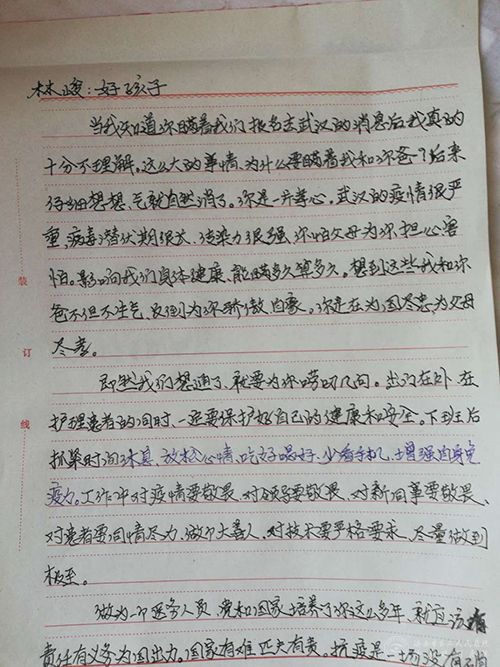 林峻:好孩子
当我知道你瞒着我们报名去武汉的消息后我真的
十分不理解。这么大的事情、为什么要瞒着我和你爸?后来
仔细想想、气就自然消了。你是一片善心,武汉的疫情很严
重,病毒潜伏期很长、传染力很强、你怕父母为你担心害
怕。影响我们身体健康、能瞒多久算多久。想到这些我和你
爸不但不生气,反倒为你骄傲自豪。你是在为国尽忠,为父母
尽孝。
装
即然我们想通了、就要为你唠叨几问。出门在外、在
订
护理患者的同时、一定要保护好自己的健康和安全。下班后
线
抓紧时间休息、放松心情、吃好喝好、少看手机、增强自身免
疫力。工作中对疫情要敬畏、对领导要敬畏、对新同事要敬畏、
对患者要同情尽力、做个大善人、对技术要严格要求、尽量做到
极至。
做为一个医务人员 党和国家培养了你这么多年、就应该有
责任有义务为国出力。国家有难 匹夫有责。抗疫是一场没有